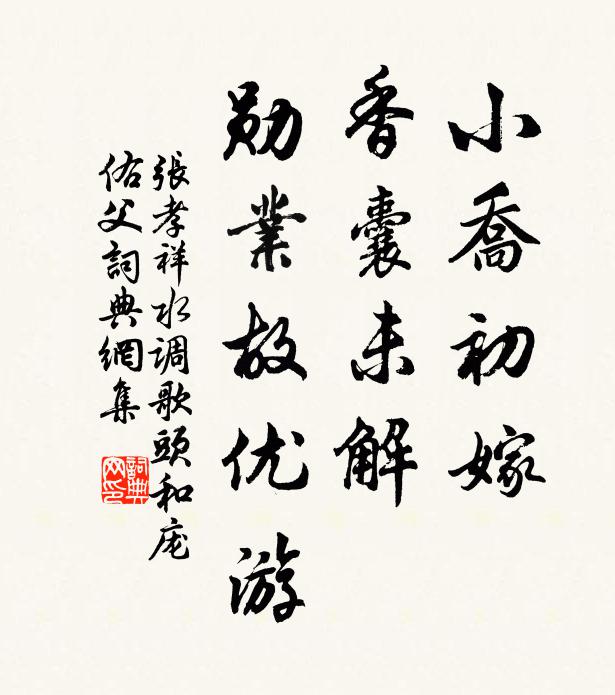 小乔初嫁
香囊未解
勋業故优游
張孝祥水调歌頭和庞
佑父詞典網集
詞典网印